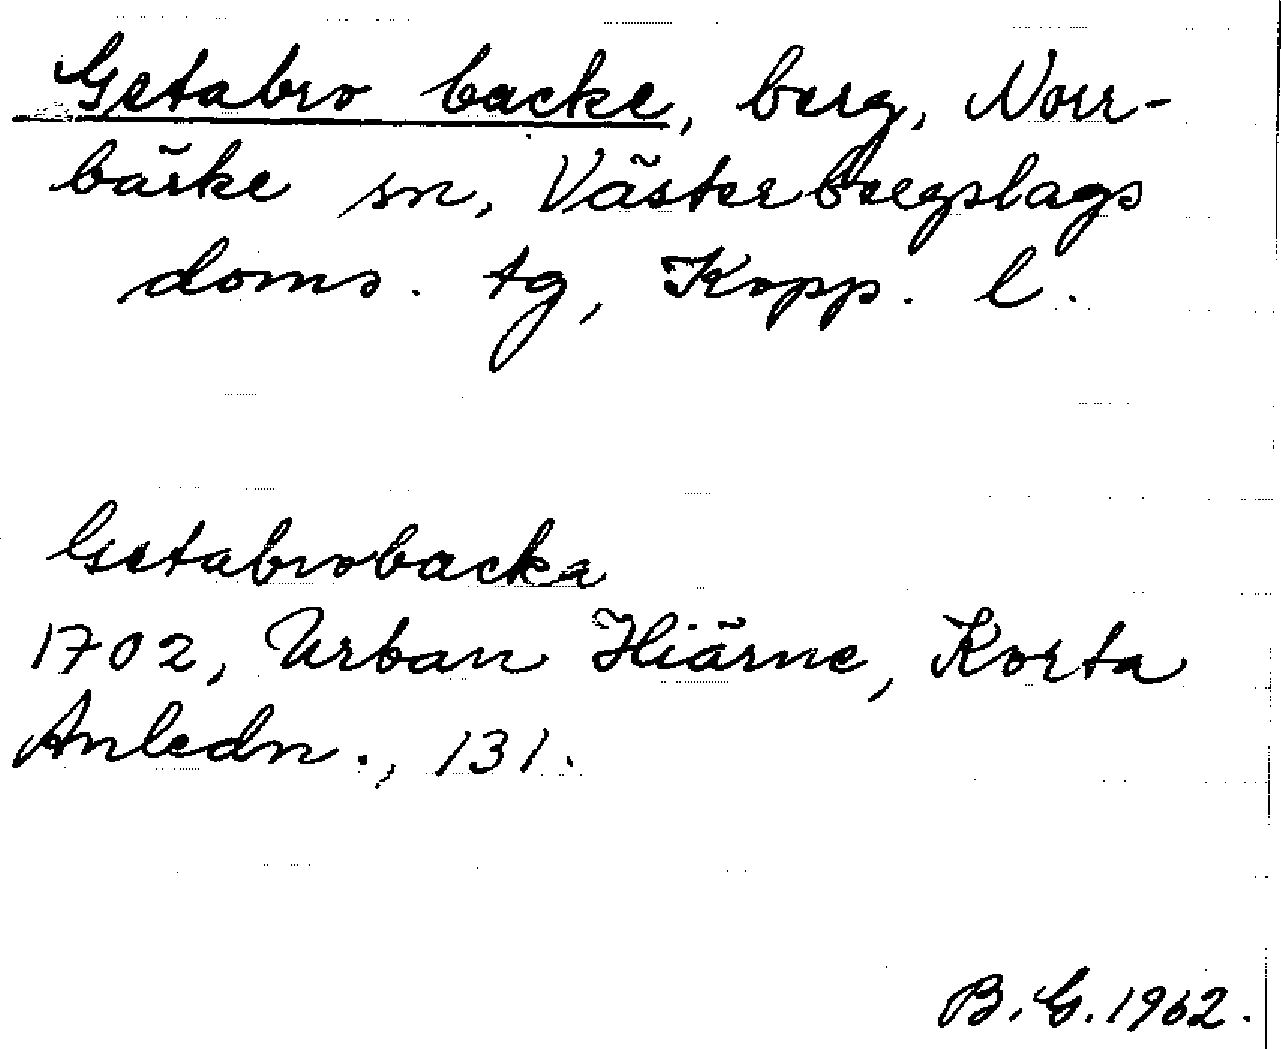 Getabro backe, berg, Norr-
bärke sn, Västerbergslags
doms. tg, Kopp. l.
Getabrobacka
1702, Urban Hiärne, Korta
Anledn., 131.
B. G. 1962.